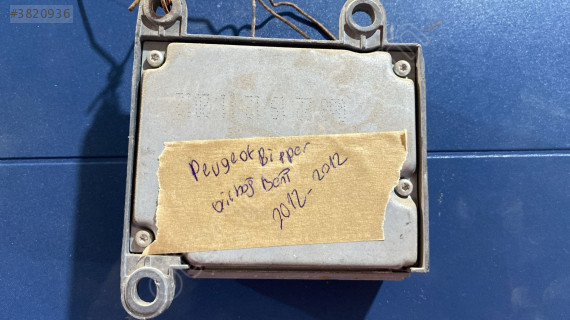 #3820936
Peugeot Bipper
airbag Beni
2012-2012